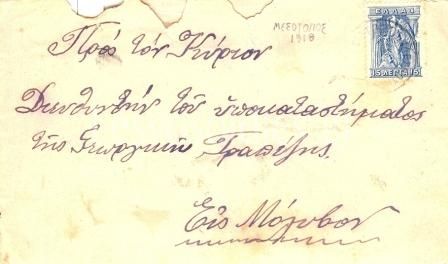 ΜΕΣΟΤΟΠΟΣ
1918
ΕΛΛΑΣ
15 ΛΕΠΤΑ 15
Πρός τόν Κύριον
Διευθυντήν τοῦ ὑποκαταστήματος
τῆς Γεωργικῆς Τραπέζης.
Εἰς Μόλυβον